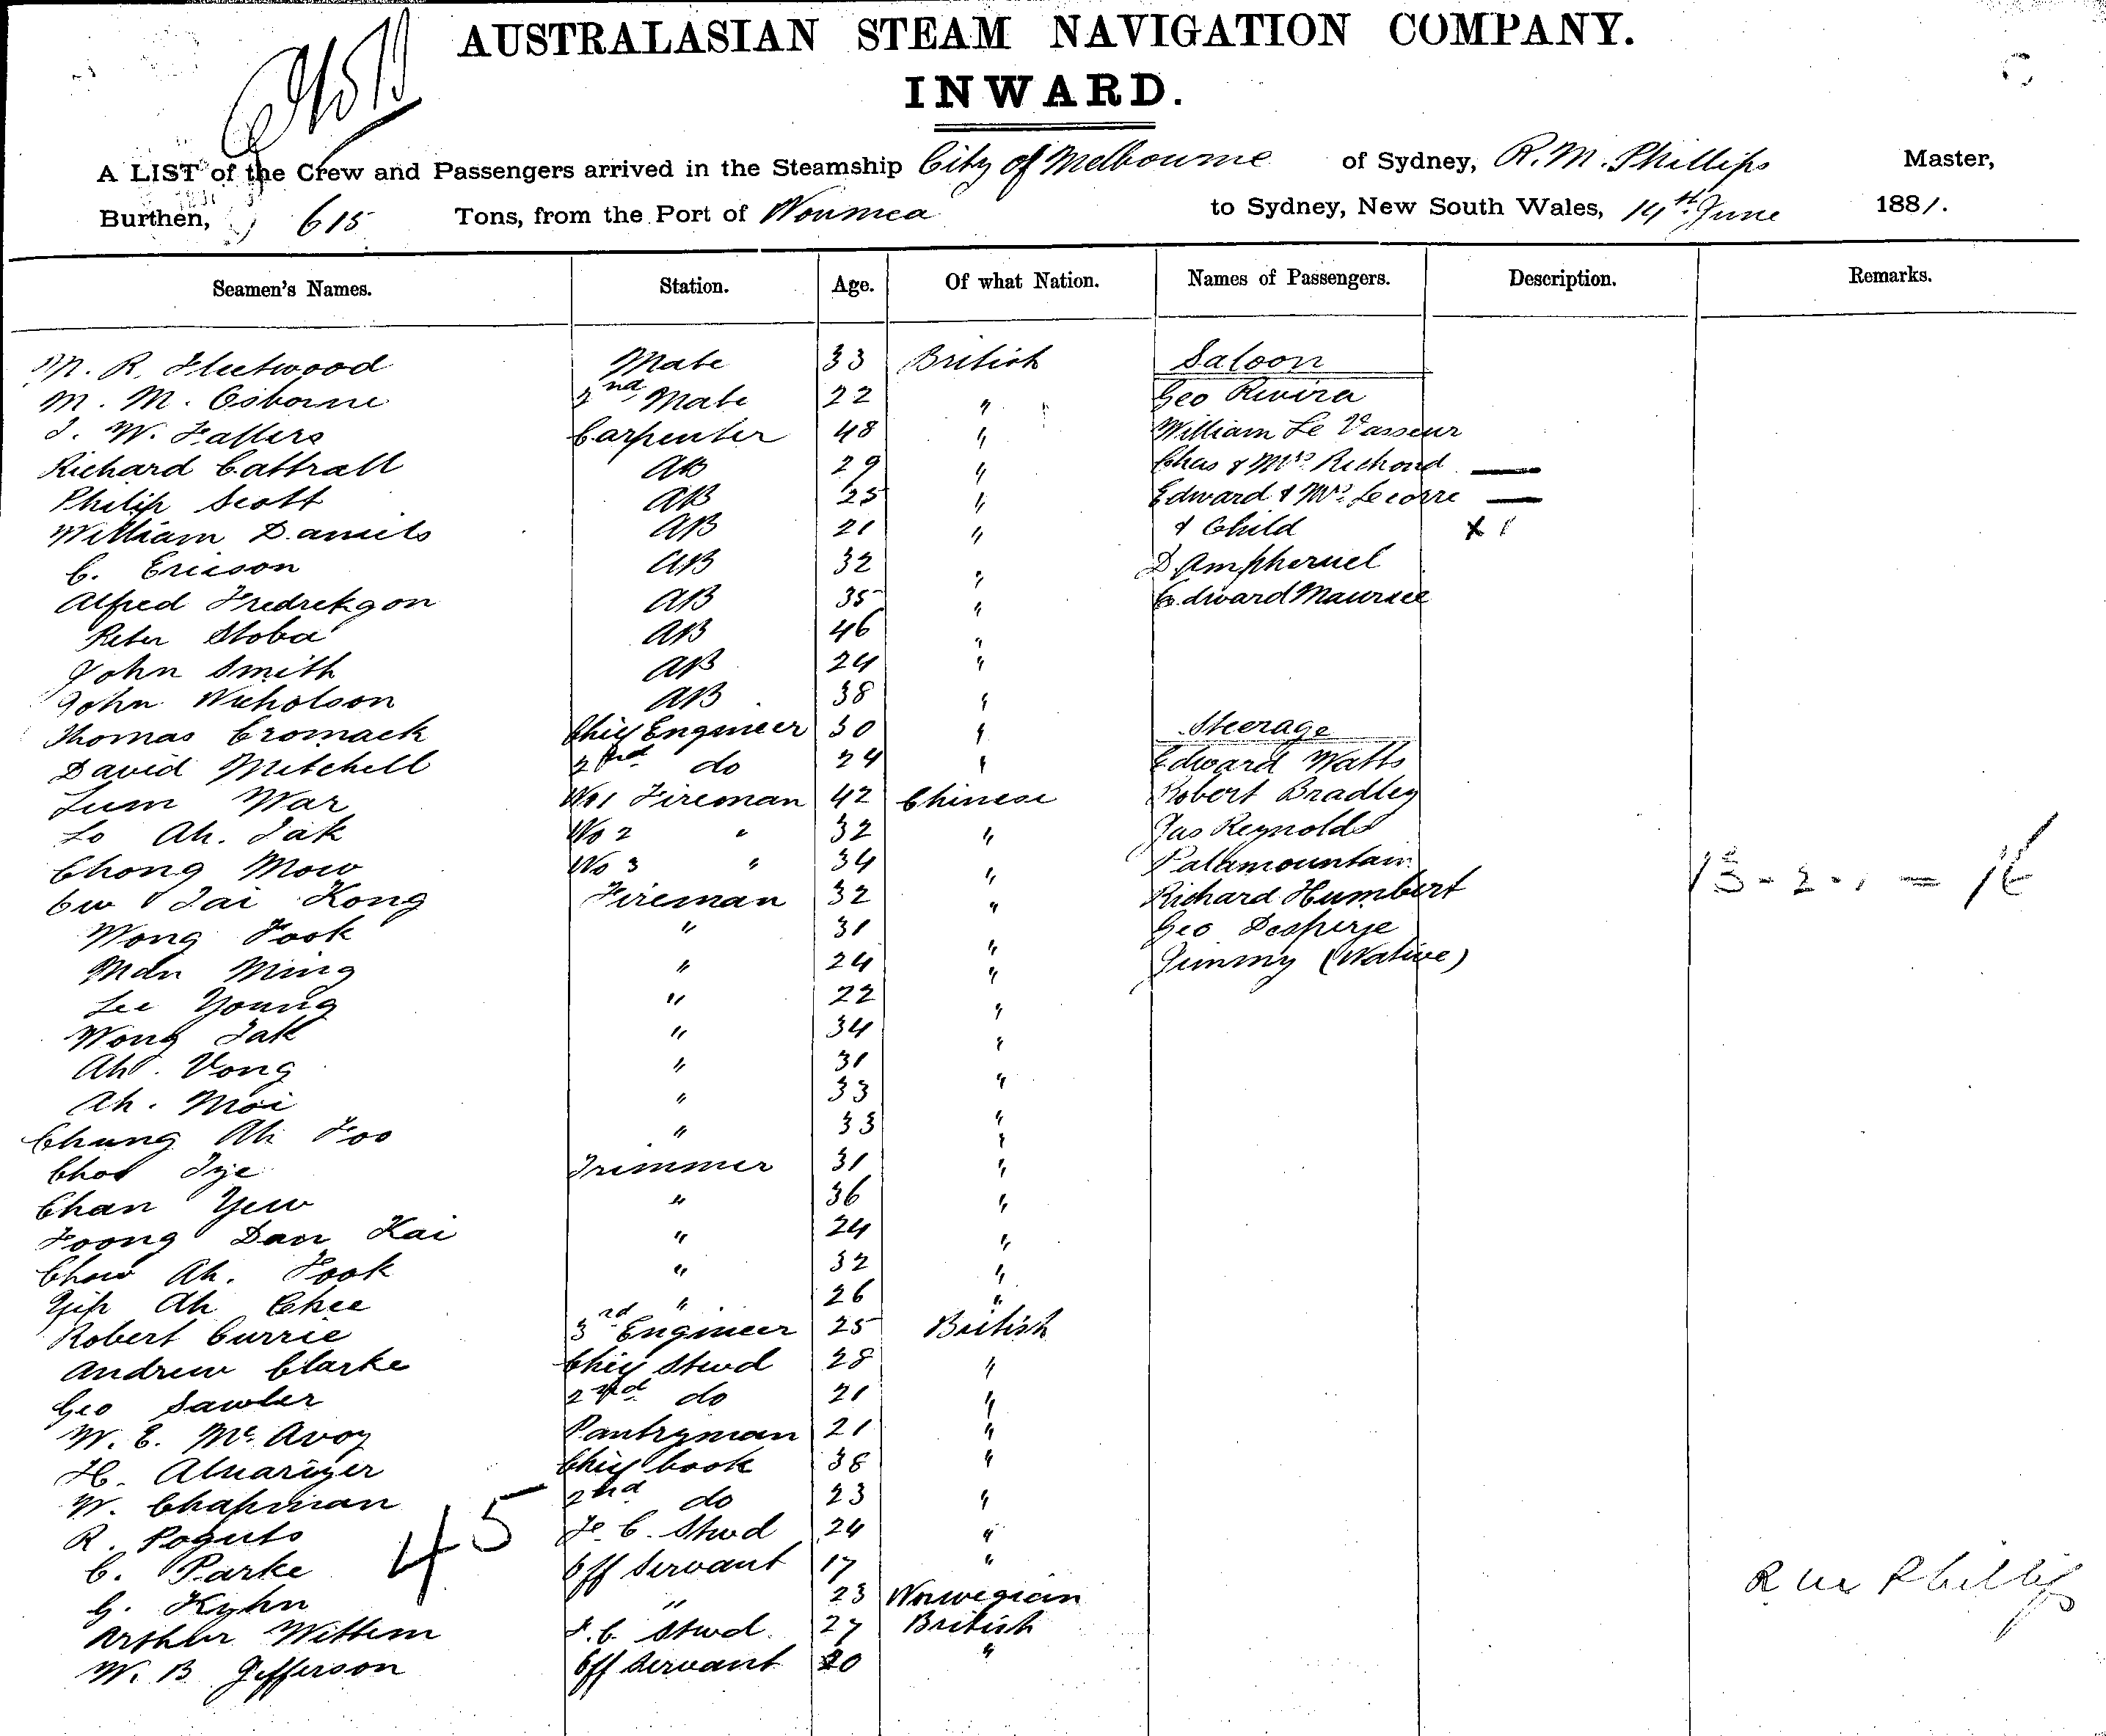 AUSTRALASIAN STEAM NAVIGATION COMPANY.
INWARD.
A LIST of the Crew and Passengers arrived in the Steamship City of Melbourne of Sydney, R. M. Phillips Master,
Burthen, 615 Tons, from the Port of Noumea to Sydney, New South Wales, 14th June 1881.
Seamen's Names. Station. Age. Of what Nation. Names of Passengers. Description. Remarks.
M. R. Fleetwood Mate 33 British Saloon
M. M. Osborne 2nd Mate 22 " Geo Rivira
J. W. Fallers Carpenter 48 " William Le Vasseur
Richard Cattrall AB 29 " Chas & Mrs Richond —
Philip Scott AB 25 " Edward & Mrs Lecorre —
William Daniels AB 21 " & Child X 1
C. Ericson AB 32 " D'Amphernel
Alfred Fredrekson AB 35 " Edward Maurice
Peter Stoba AB 46 "
John Smith AB 24 "
John Nicholson AB 38 "
Thomas Cromack Chief Engineer 30 " Steerage
David Mitchell 2nd do 24 " Edward Watts
Lum War No 1 Fireman 42 Chinese Robert Bradley
Lo Ah. Jak No 2 " 32 " Jas Reynolds
Chong Mow No 3 " 34 " Palamountain
Cw Jai Kong Fireman 32 " Richard Humbert
Wong Fook " 31 " Geo Desperje
Man Ming " 24 " Jimmy (Native)
Lee Young " 22 "
Wong Jak " 34 "
Ah. Vong " 31 "
Ah. Moi " 33 "
Chung Ah Foo " 33 "
Choo Jye Trimmer 31 "
Chan Yew " 36 "
Foong Dan Kai " 24 "
Chow Ah. Fook " 32 "
Yip Ah Chee " 26 "
Robert Currie 3rd Engineer 25 British
Andrew Clarke Chief Stwd 28 "
Geo Sawler 2nd do 21 "
W. E. McAvoy Pantryman 21 "
H. Alnarizer Chief Cook 38 "
W. Chapman 2nd do 23 "
R. Poguts F. C. Stwd 24 "
C. Parke Off Servant 17 "
G. Kyhn " 23 Norwegian
Arthur Wittem F. C. Stwd. 27 British
W. B Jefferson Off Servant 20 "
45
13 - 2 - 1 = 16
R M Phillips